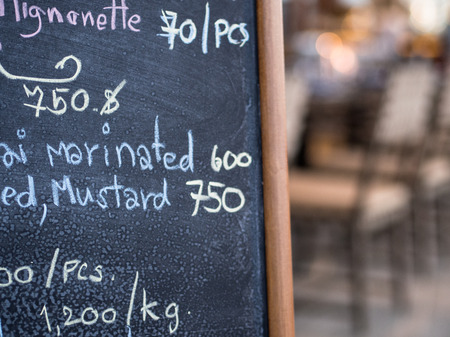 Mignonette 70/pcs
750.$
ai marinated 600
ed, Mustard 750
00/Pcs.
/1,200/kg.